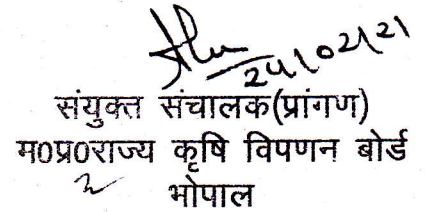 24/02/21
संयुक्त संचालक(प्रांगण)
म0प्र0राज्य कृषि विपणन बोर्ड
भोपाल